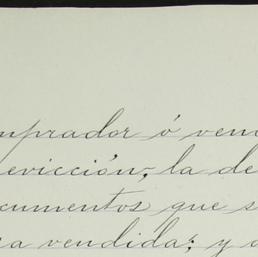 mprador ó ven
evicción, la de
cumentos que s
a vendida; y